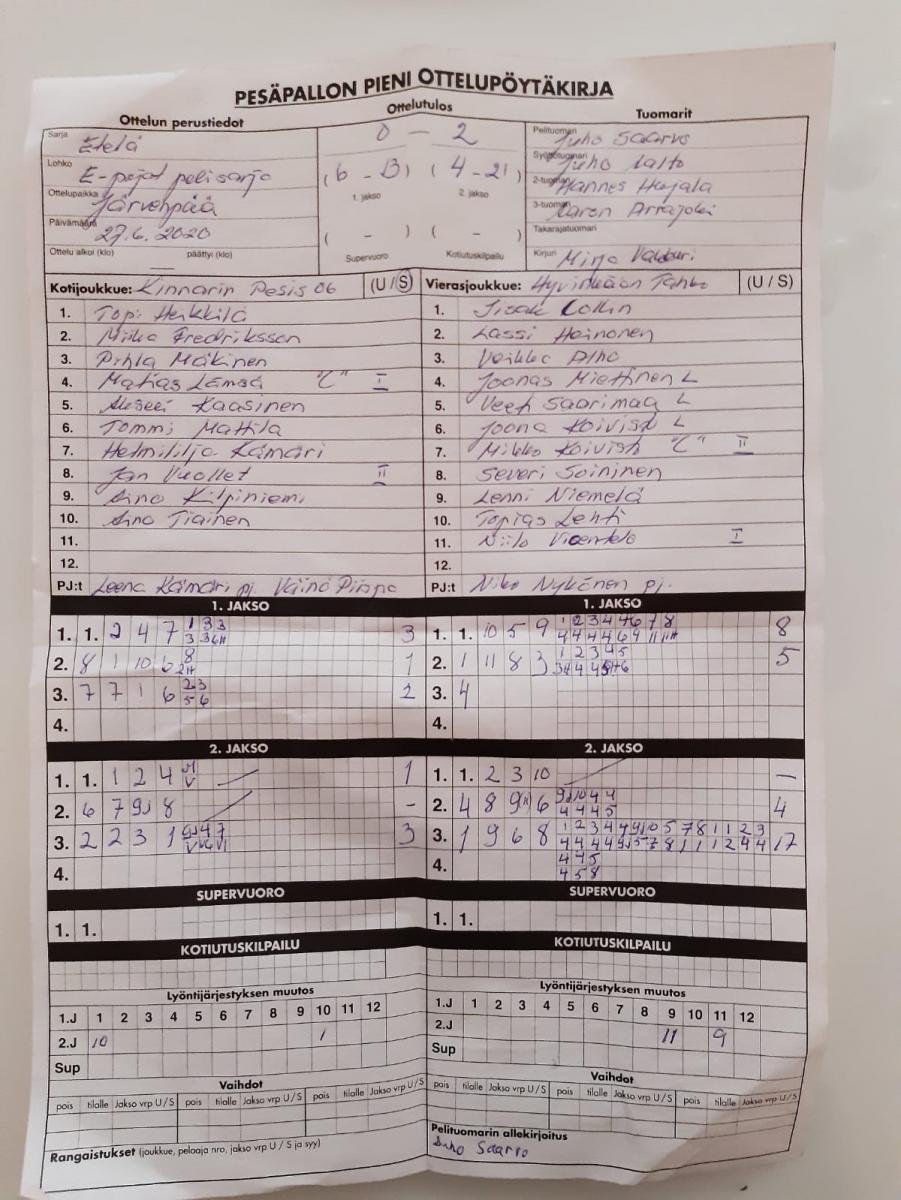 PESÄPALLON PIENI OTTELUPÖYTÄKIRJA
Ottelun perustiedot
Ottelutulos
Tuomarit
Sarja Etelä
Lohko E-pojat pelisarja
Ottelupaikka Järvenpää
Päivämäärä 27.6.2020
Ottelu alkoi (klo) päättyi (klo)
0 - 2
(6 - 13) (4 - 21)
1. jakso 2. jakso
( - ) ( - )
Supervuoro Kotiutuskilpailu
Pelituomari Juho Saarvo
Syöttötuomari Juho Aalto
2-tuomari Hannes Harjala
3-tuomari
Takarajatuomari
Kirjuri Mirja
Kotijoukkue: Kinnarin Pesis 06 (U / S)
1. Topi Heikkilä
2. Miika Fredriksson
3. Pihla Mäkinen
4. Matias Lämsä "C" I
5. Kaasinen
6. Tommi Mattila
7. Helmililja Kämäri
8. Jan Vuollet II
9. Aino Kilpiniemi
10. Aino Tiainen
11.
12.
PJ:t Leena Kämäri pj. Väinö
Vierasjoukkue: Hyvinkään Tahko (U / S)
1. Iisak Collin
2. Lassi Heinonen
3. Veikko Alho
4. Joonas Miettinen L
5. Veeti Saarimaa L
6. Joona Koivisto L
7. Mikko Koivisto "C" II
8. Severi Soininen
9. Lenni Niemelä
10. Topias Lehti
11. Niilo I
12.
PJ:t Niko Nykänen pj.
1. JAKSO
1. 1. 2 4 7 3
2. 8 1 10 6 1
3. 7 7 1 6 2
4.
1. JAKSO
1. 1. 10 5 9 8
2. 1 11 8 3 5
3. 4
4.
2. JAKSO
1. 1. 1 2 4 1
2. 6 7 9J 8 -
3. 2 2 3 1 3
4.
2. JAKSO
1. 1. 2 3 10 -
2. 4 8 9 6 4
3. 1 9 6 8 17
4.
SUPERVUORO
1. 1.
SUPERVUORO
1. 1.
KOTIUTUSKILPAILU
KOTIUTUSKILPAILU
Lyöntijärjestyksen muutos
1.J 1 2 3 4 5 6 7 8 9 10 11 12
2.J 10 1
Sup
Lyöntijärjestyksen muutos
1.J 1 2 3 4 5 6 7 8 9 10 11 12
2.J 11 9
Sup
Vaihdot
pois tilalle Jakso vrp U / S pois tilalle Jakso vrp U / S pois tilalle Jakso vrp U / S
Vaihdot
pois tilalle Jakso vrp U / S pois tilalle Jakso vrp U / S pois tilalle Jakso vrp U / S
Rangaistukset (joukkue, pelaaja nro, jakso vrp U / S ja syy)
Pelituomarin allekirjoitus
Juho Saarvo